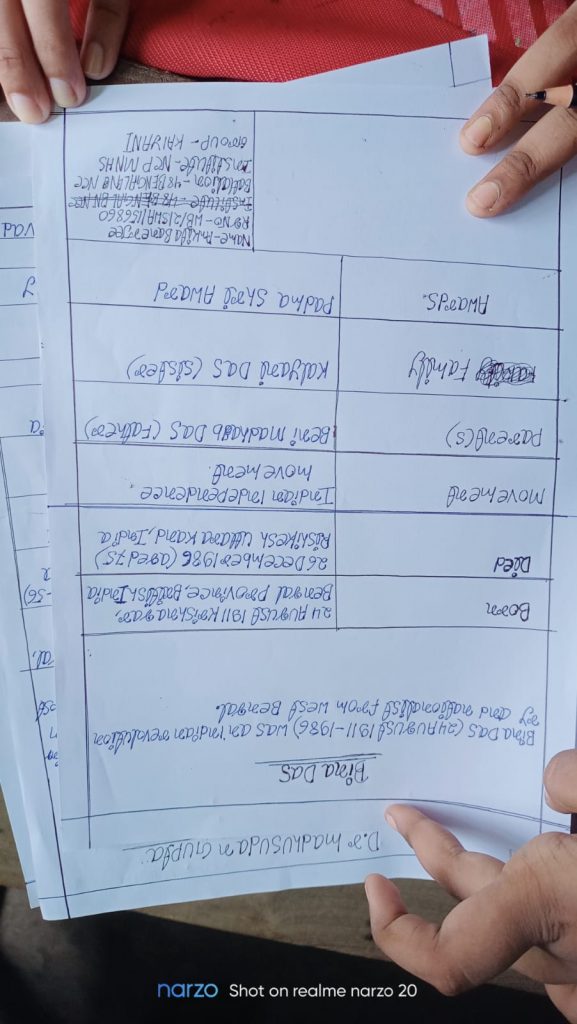 D.r MADHUSUDAN GUPTA
BINA DAS
BINA DAS (24 AUGUST 1911-1986) WAS an indian revolution
ry and nationalist from west Bengal.
Born
24 AUGUST 1911 Krishnagar,
Bengal province, British India
Died
26 DECEMBER 1986 (aged 75)
Rishikesh Uttarakhand, India
MOVEMENT
Indian independence
movement.
parent(s)
Beni Madhab DAS (Father)
Family
Kalyani DAS (sister)
AWARDS.
PADMA Shri AWARD
Name- Ankita Banerjee
RG NO - WB/21/SHA/158660
Battalion - 48 BENGAL BN NCC
Institute - NCP MNHS
Group - KALYANI
narzo Shot on realme narzo 20